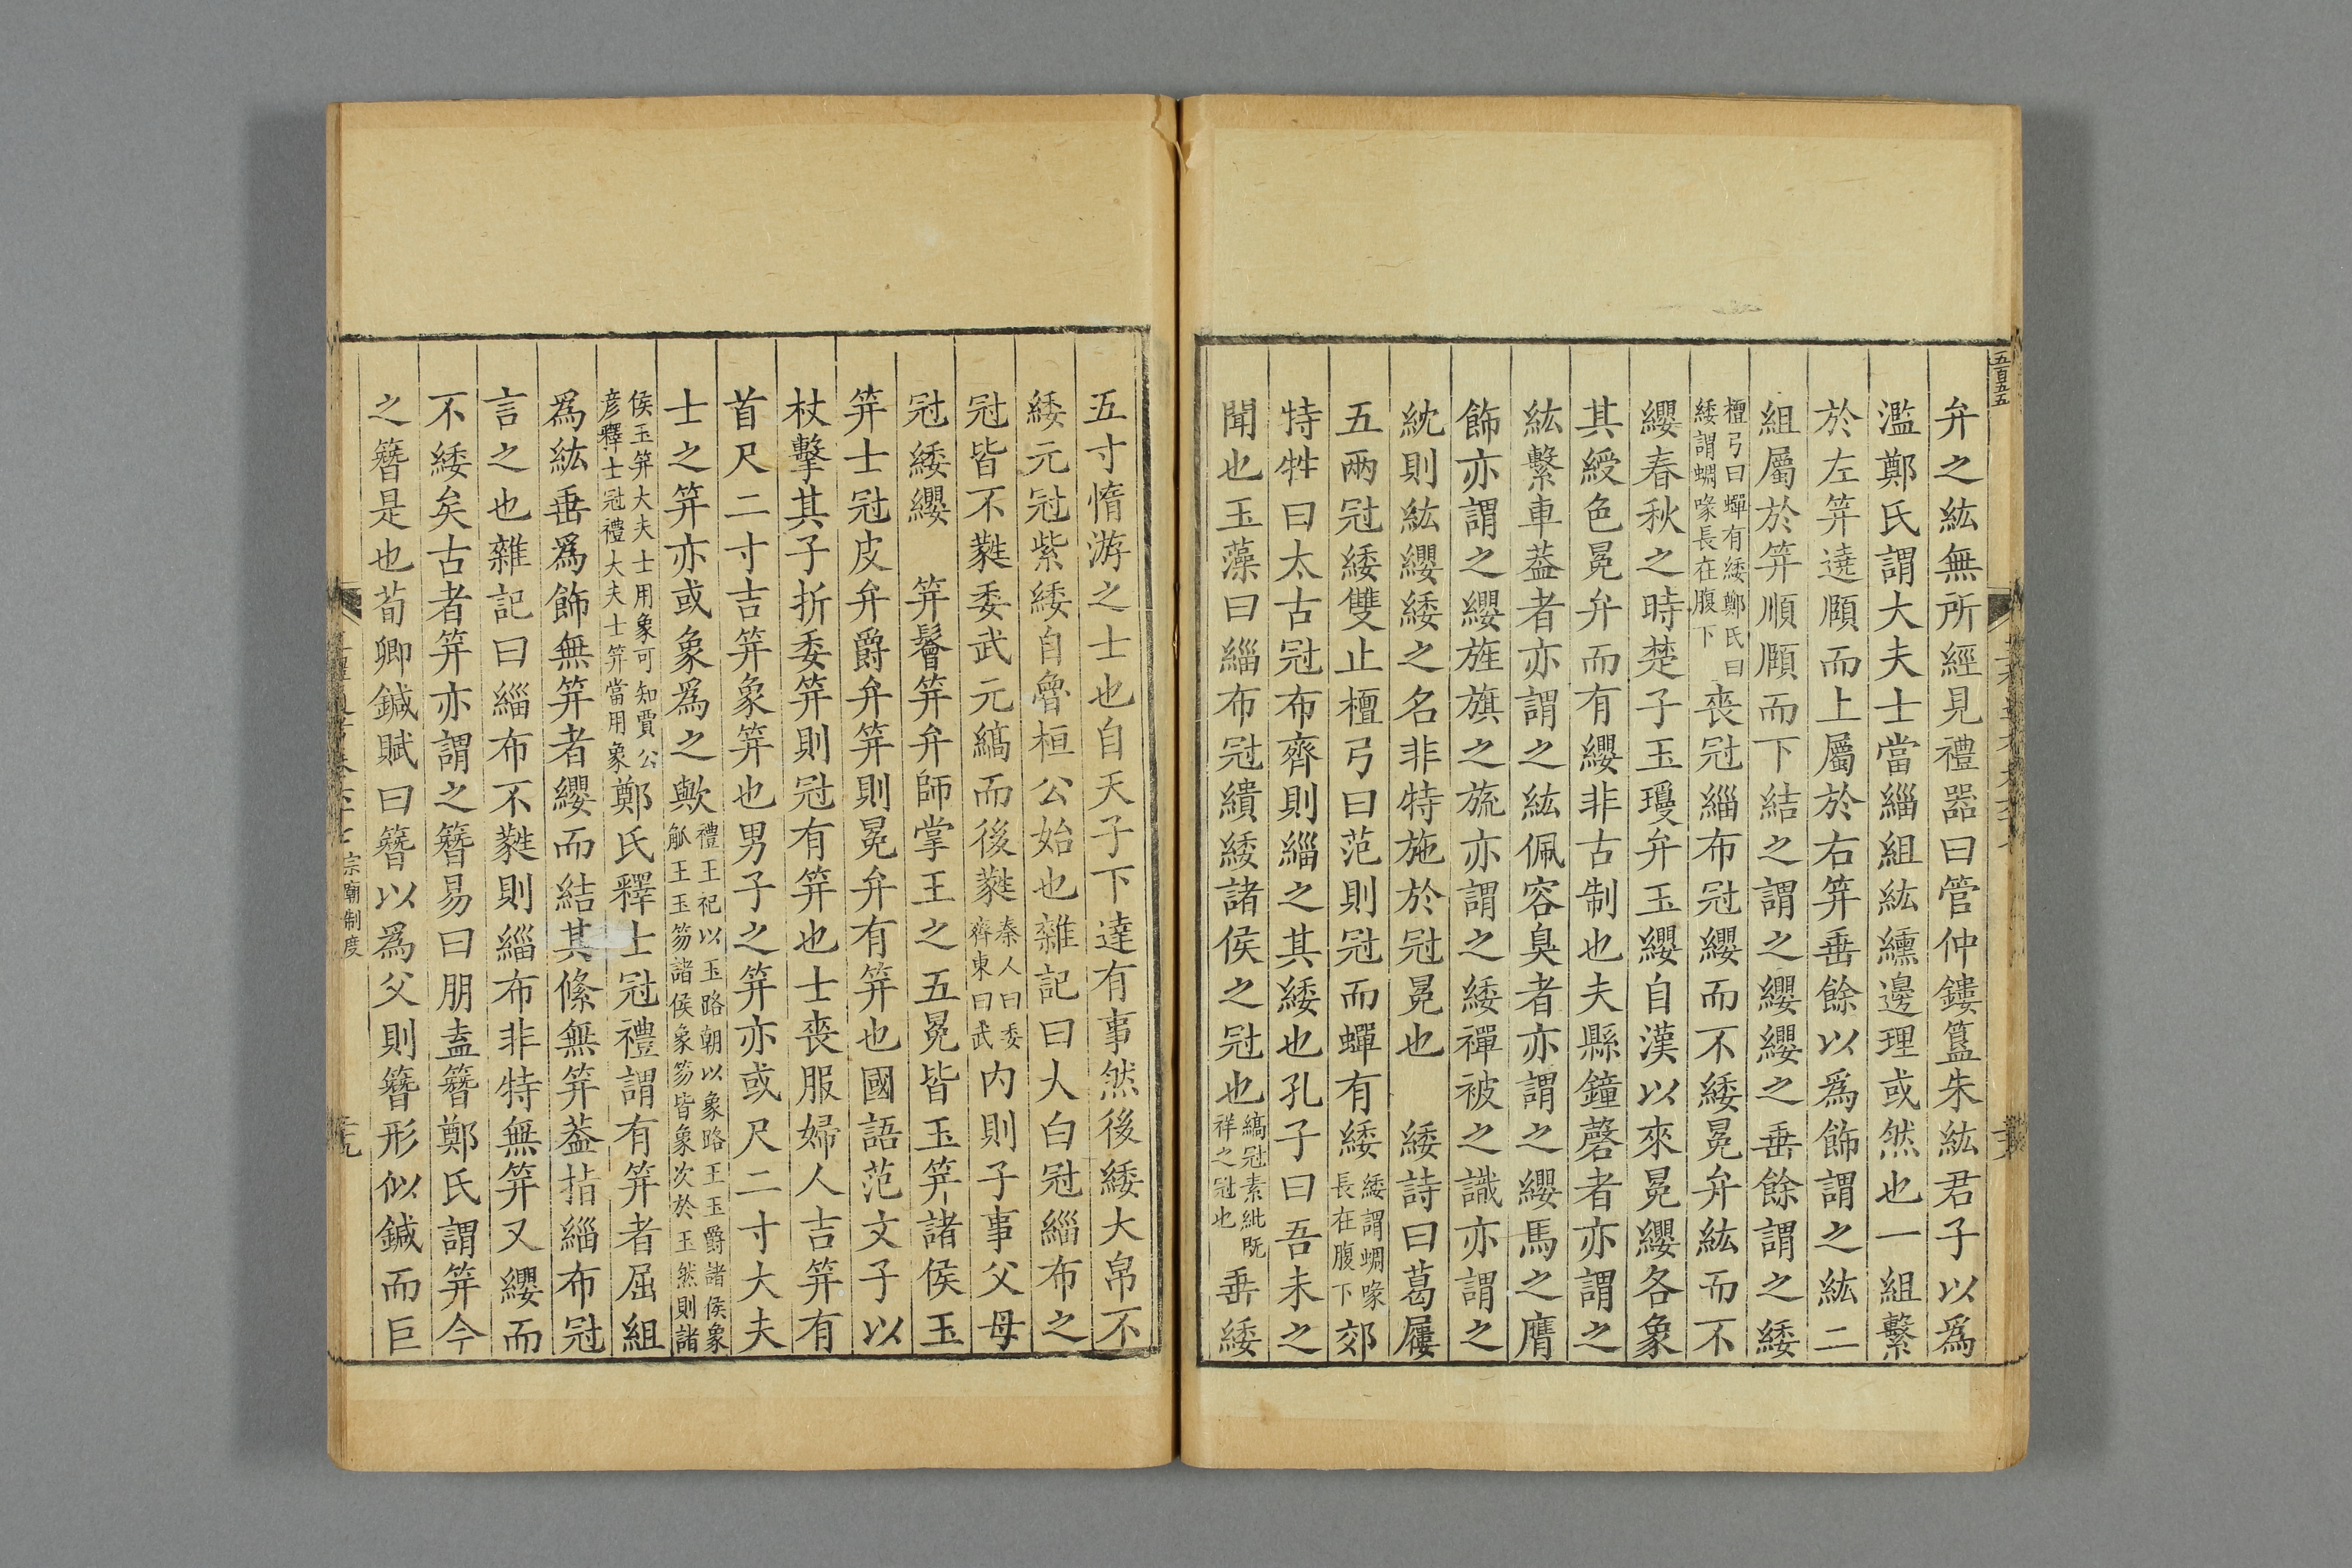 五百五五
弁之紘無所經見禮器曰管仲鏤簋朱紘君子以爲
濫鄭氏謂大夫士當緇組紘纁邊理或然也一組繫
於左笄遶頤而上屬於右笄垂餘以爲飾謂之紘二
組屬於笄順頤而下結之謂之纓纓之垂餘謂之緌
檀弓曰蟬有緌鄭氏曰
緌謂蜩喙長在腹下
喪冠緇布冠纓而不緌冕弁紘而不
纓春秋之時楚子玉瓊弁玉纓自漢以來冕纓各象
其綬色冕弁而有纓非古制也夫縣鐘磬者亦謂之
紘繫車蓋者亦謂之紘佩容臭者亦謂之纓馬之膺
飾亦謂之纓旌旗之旒亦謂之緌襌被之識亦謂之
紞則紘纓緌之名非特施於冠冕也　緌詩曰葛屨
五兩冠緌雙止檀弓曰范則冠而蟬有緌
緌謂蜩喙
長在腹下
郊
特牲曰太古冠布齊則緇之其緌也孔子曰吾未之
聞也玉藻曰緇布冠繢緌諸侯之冠也
縞冠素紕既
祥之冠也
垂緌
五寸惰游之士也自天子下達有事然後緌大帛不
緌元冠紫緌自魯桓公始也雜記曰大白冠緇布之
冠皆不蕤委武元縞而後蕤
秦人曰委
齊東曰武
內則子事父母
冠緌纓　笄鬠笄弁師掌王之五冕皆玉笄諸侯玉
笄士冠皮弁爵弁笄則冕弁有笄也國語范文子以
杖擊其子折委笄則冠有笄也士喪服婦人吉笄有
首尺二寸吉笄象笄也男子之笄亦或尺二寸大夫
士之笄亦或象爲之歟
禮王祀以玉路朝以象路王玉爵諸侯象
觚王玉笏諸侯象笏皆象次於玉然則諸
侯玉笄大夫士用象可知賈公
彦釋士冠禮大夫士笄當用象
鄭氏釋士冠禮謂有笄者屈組
爲紘垂爲飾無笄者纓而結其絛無笄蓋指緇布冠
言之也雜記曰緇布不蕤則緇布非特無笄又纓而
不緌矣古者笄亦謂之簪易曰朋盍簪鄭氏謂笄今
之簪是也荀卿鍼賦曰簪以爲父則簪形似鍼而巨
宗廟制度